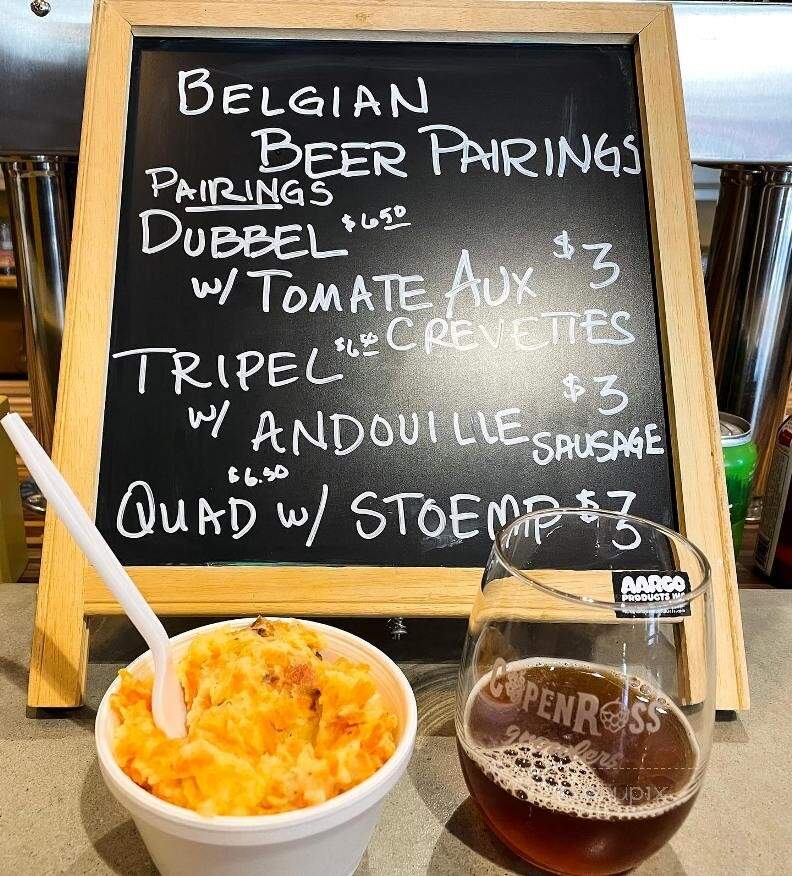 BELGIAN
BEER PAIRINGS
PAIRINGS
DUBBEL $6.50
w/ TOMATE AUX $3
CREVETTES
TRIPEL $6.50
w/ ANDOUILLE $3
SAUSAGE
$6.50
QUAD w/ STOEMP $3
AARGO
PRODUCTS INC
COPENROSS
growlers